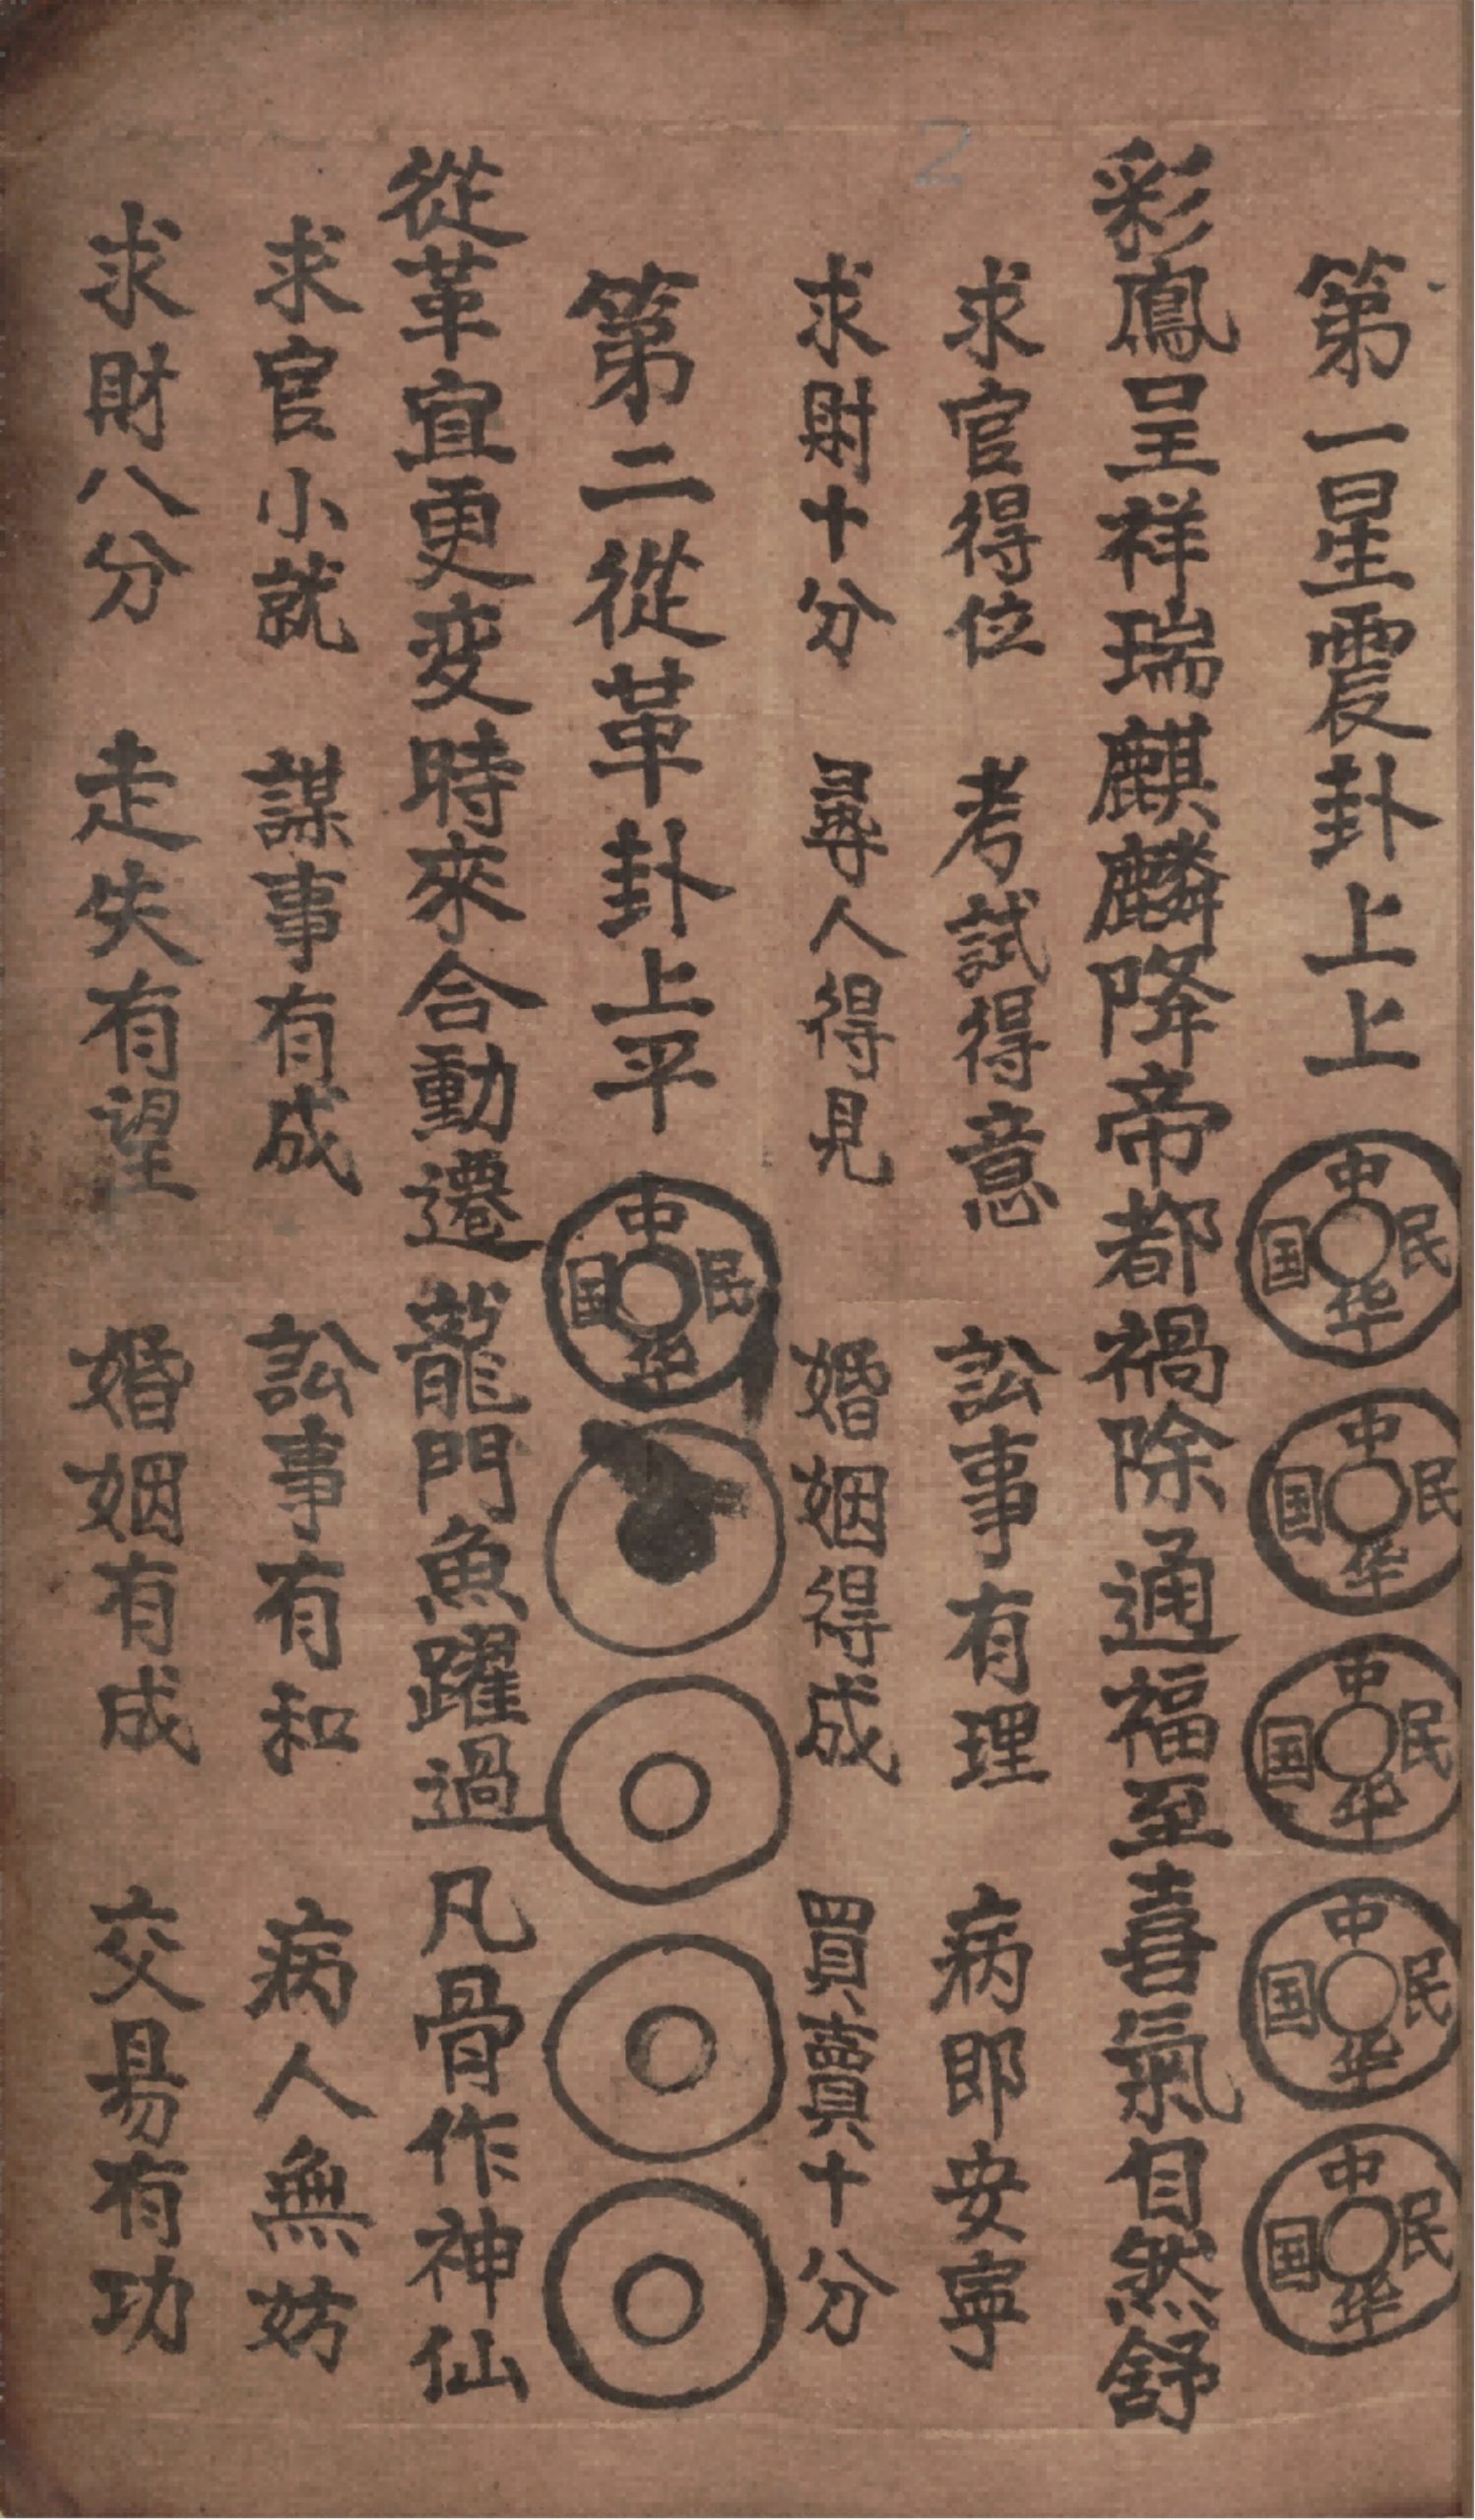 第一星震卦上上 中华民国 中华民国 中华民国 中华民国 中华民国
彩鳳呈祥瑞麒麟降帝都禍除通福至喜氣自然舒
求官得位 考試得意 訟事有理 病即安寧
求財十分 尋人得見 婚姻得成 買賣十分
2
第二從革卦上平 中华民国
從革宜更变時來合動遷龍門魚躍過凡骨作神仙
求官小就 謀事有成 訟事有和 病人無妨
求財八分 走失有望 婚姻有成 交易有功